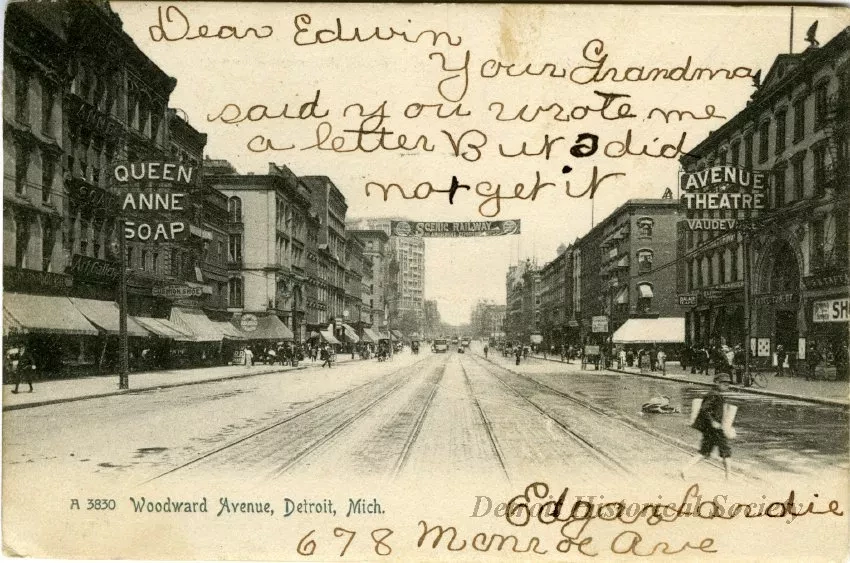 Dear Edwin
Your Grandma
said you wrote me
a letter But I did
not get it
QUEEN
ANNE
SOAP
SCENIC RAILWAY
AVENUE
THEATRE
VAUDEV
SH
A 3830 Woodward Avenue, Detroit, Mich.
Detroit Historical Society
Edgar
678 Monroe Ave